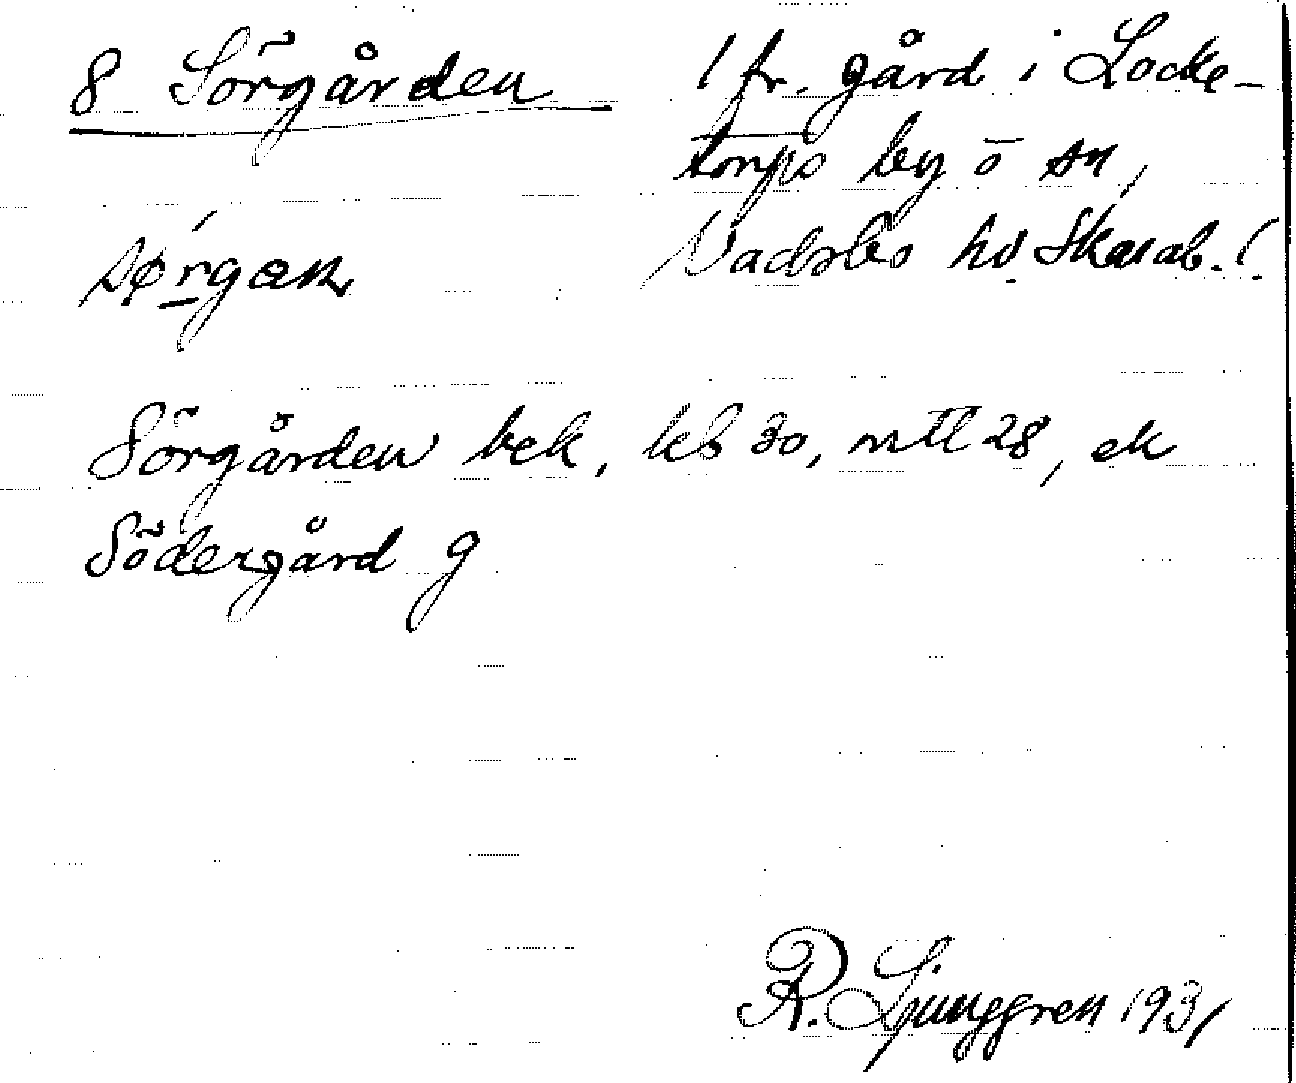 8 Sörgården
1 fr. gård i Locke-
torps by ö sn,
Vadsbo hd Skarab. l.
sǿrgæn
Sörgården bek, leb 30, mtl 28, ek
Södergård g
R. Ljunggren 1931